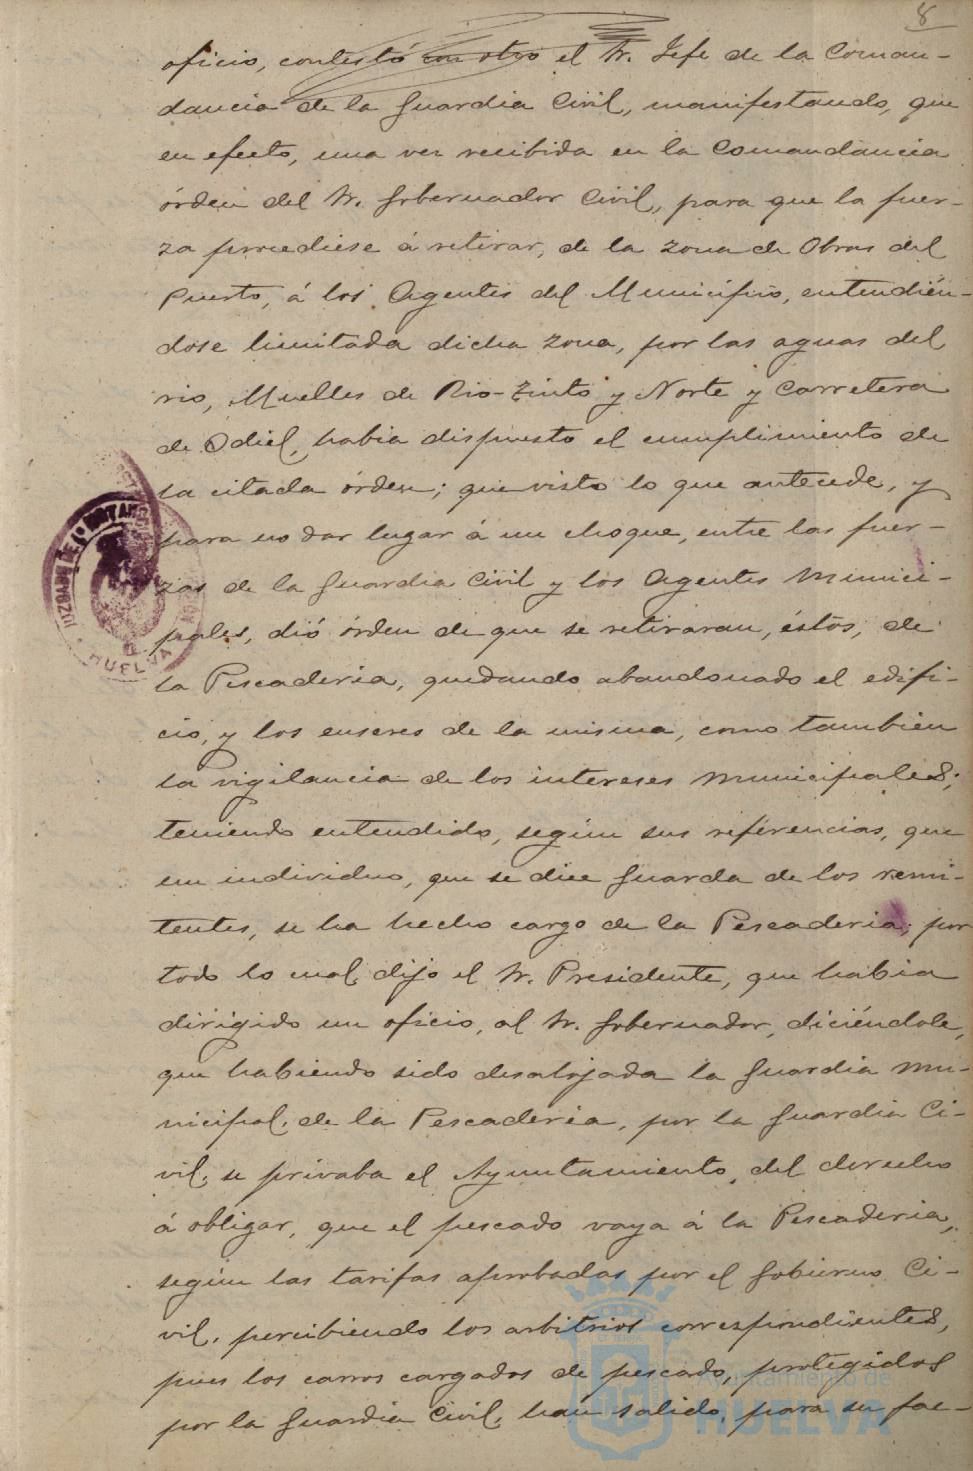 8
oficio, contestó con otro el Sr. Jefe de la Coman-
dancia de la Guardia Civil, manifestando, que
en efecto, una vez recibida en la Comandancia
órden del Sr. Gobernador Civil, para que la fuer-
za procediese á retirar, de la zona de Obras del
Puerto, á los Agentes del Municipio, entendién-
dose limitada dicha zona, por las aguas del
rio, Muelles de Rio-Tinto y Norte y Carretera
de Odiel, habia dispuesto el cumplimiento de
la citada órden; que visto lo que antecede, y
para no dar lugar á un choque, entre las fuer-
zas de la Guardia Civil y los Agentes Munici-
pales, dió órden de que se retiraran, éstos, de
la Pescaderia, quedando abandonado el edifi-
cio, y los enseres de la misma, como tambien
la vigilancia de los intereses Municipales;
teniendo entendido, según sus referencias, que
un individuo, que se dice Guarda de los remi-
tentes, se ha hecho cargo de la Pescaderia; por
todo lo cual, dijo el Sr. Presidente, que habia
dirigido un oficio, al Sr. Gobernador, diciéndole,
que habiendo sido desalojada la Guardia Mu-
nicipal, de la Pescaderia, por la Guardia Ci-
vil, se privaba el Ayuntamiento, del derecho
á obligar, que el pescado vaya á la Pescaderia,
según las tarifas aprobadas por el Gobierno Ci-
vil, percibiendo los arbitrios correspondientes,
pues los carros cargados de pescado, protegidos
por la Guardia Civil, han salido, para su fac-
JUZGADO DE 1ª INSTANCIA
HUELVA
Ayuntamiento de
HUELVA